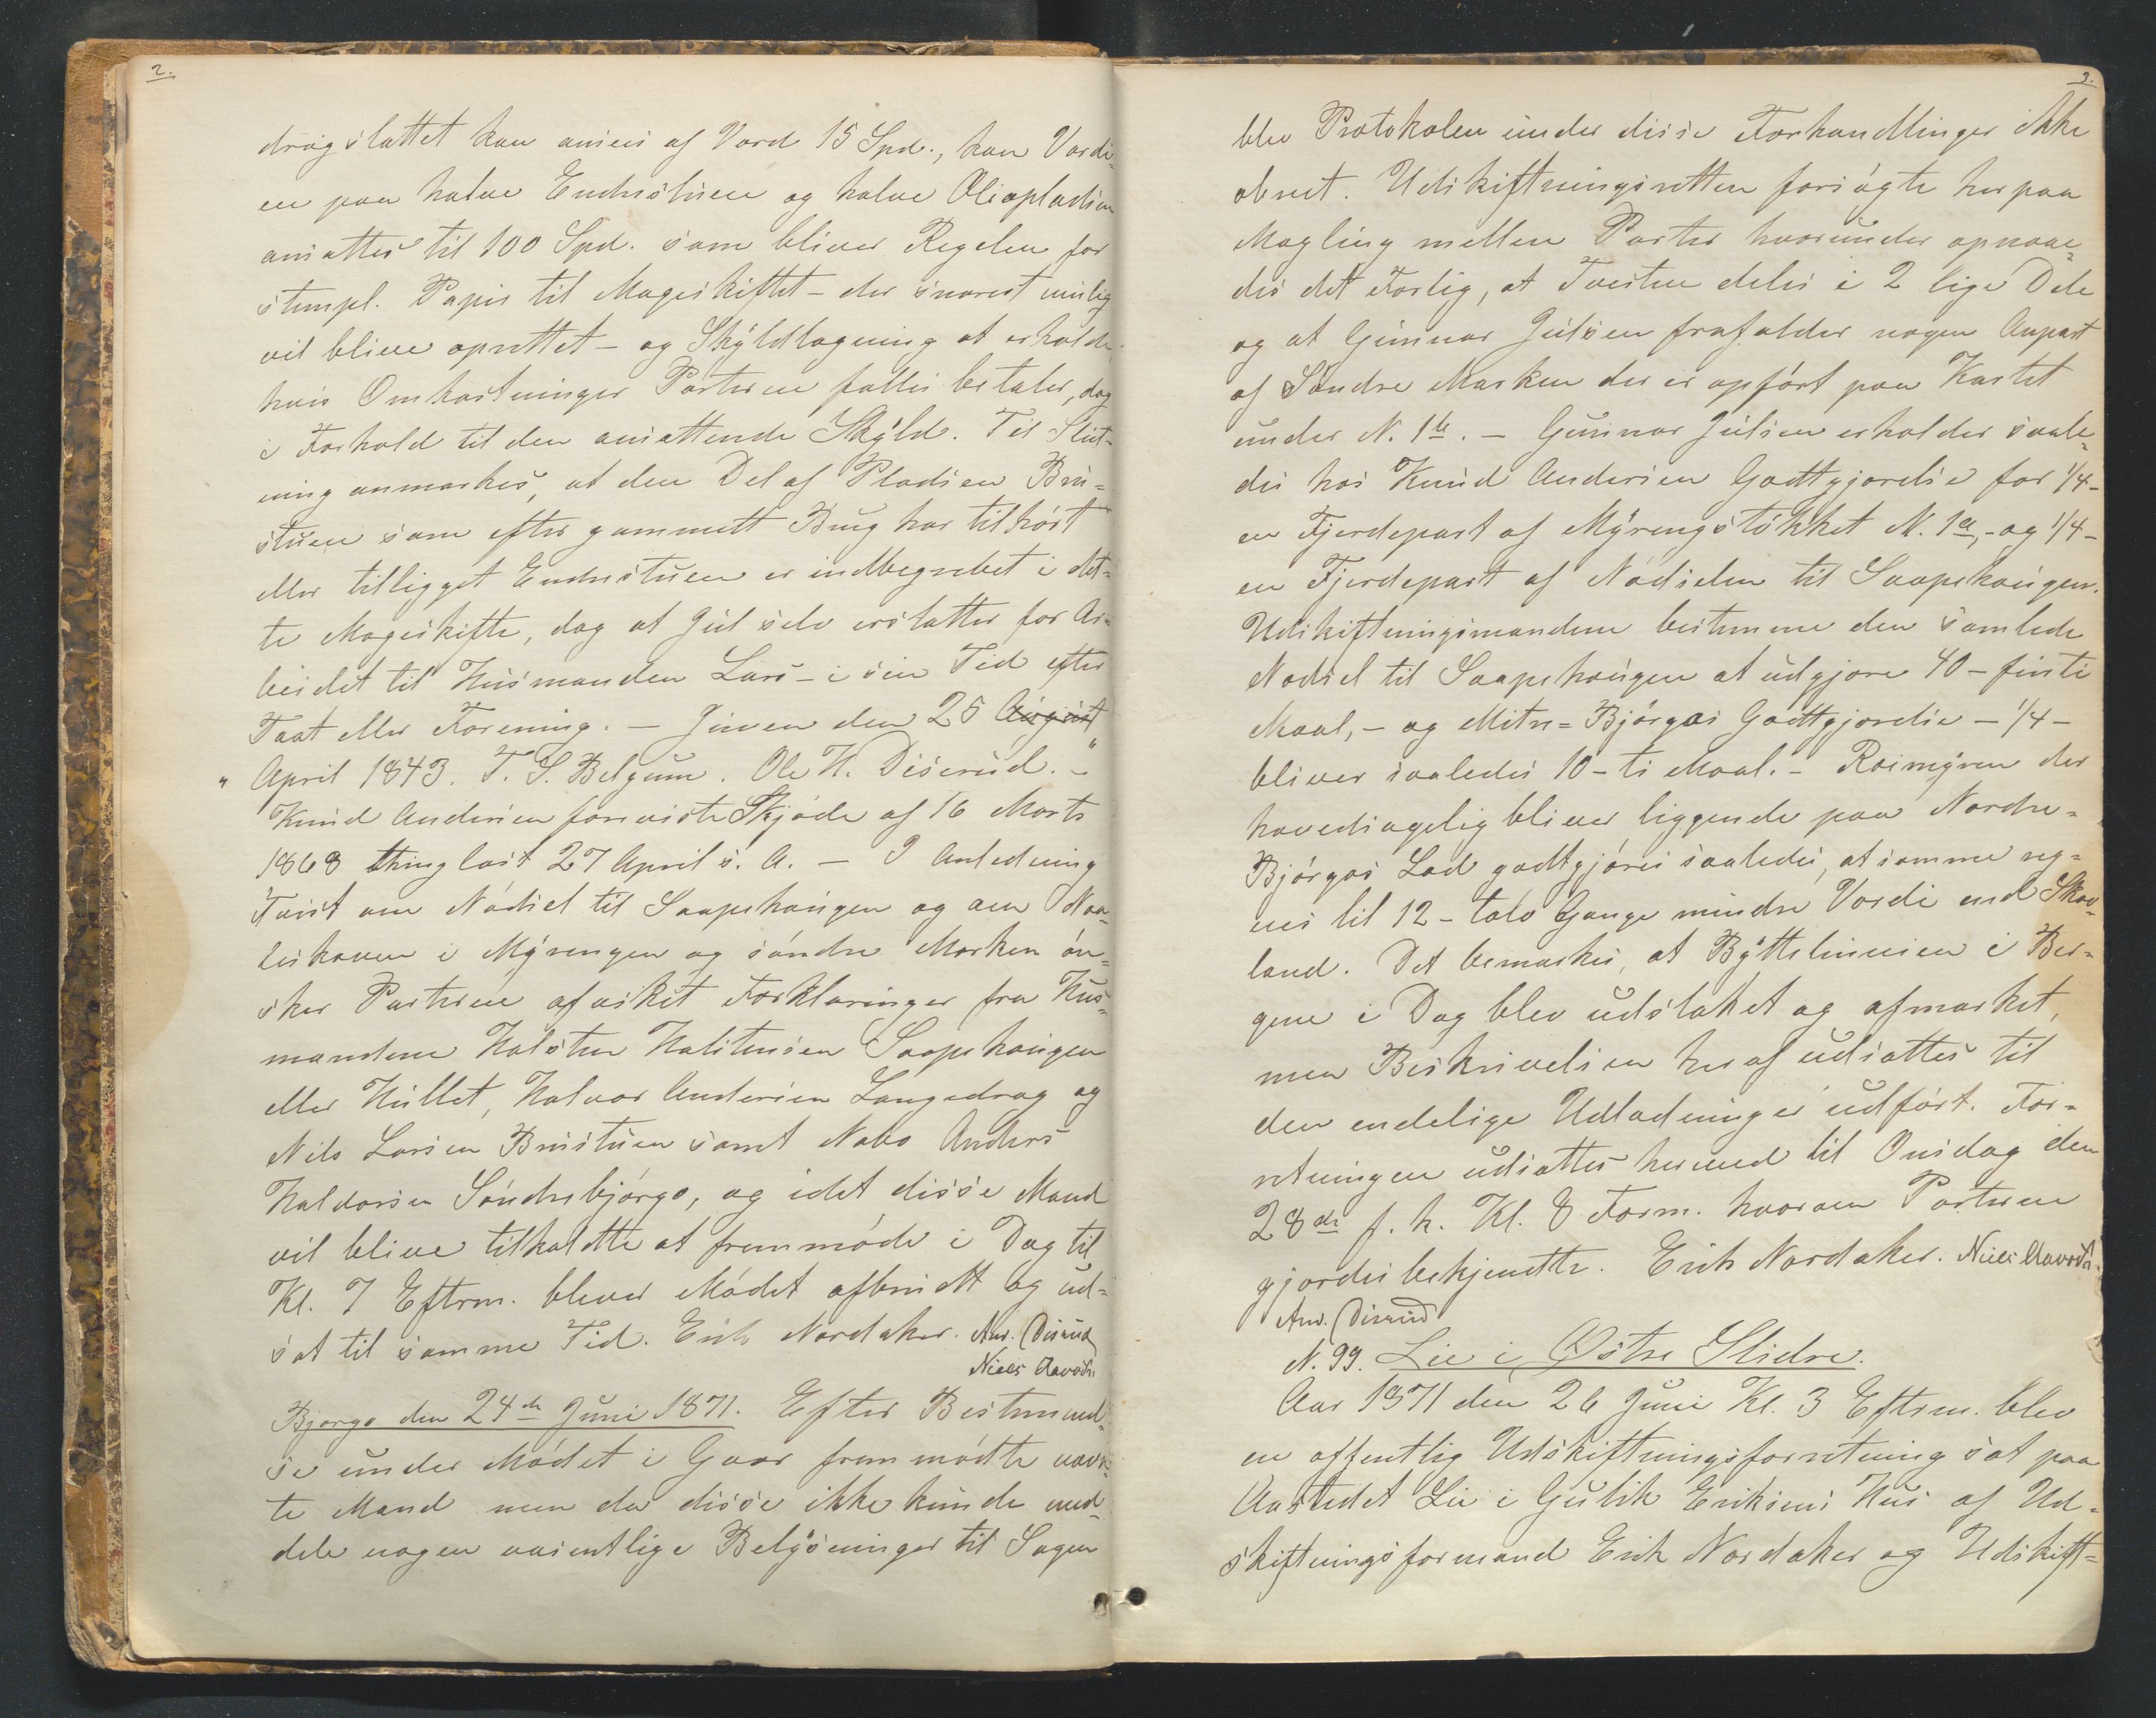 2.
dragslættet kan ansees af Værd 15 Spd., kan Værdi-
en paa halve Endrestuen og halve Oliapladsen
ansættes til 100 Spd. som bliver Regelen for
stempl. Papir til Mageskiftet – der snarest mulig
vil blive oprettet – og Skyldlægning at erholde
hvis Omkostninger Parterne fælles betaler, dog
i Forhold til den ansættende Skyld. Til Slut-
ning anmærkes, at den Del af Pladsen Bru-
stuen som efter gammelt Brug har tilhørt
eller tilligget Endrestuen er indbegrebet i det-
te Mageskifte, dog at Juel selv erstatter for Ar-
beidet til Husmanden Lars – i sin Tid efter
Taxt eller Forening. – Juven den 25 August
" April 1843. T. S. Belgum. Ole H. Diserud. – "
Knud Andersen foreviste Skjøde af 16 Marts
1868 thinglæst 27 April s. A. – I Anledning
Tvist om Nådsel til Saapehaugen og om Naa-
leskoven i Myrengen og søndre Marken øn-
sker Parterne afæsket Forklaringer fra Hus-
mændene Halsten Halstensen Saapehaugen
eller Hullet, Halvor Andersen Langedrag og
Nils Larsen Brustuen samt Nabo Anders
Haldorsen Søndrebjørgo, og idet disse Mænd
vil blive tilkaldte at fremmøde i Dag til
Kl. 7 Efterm. blever Mødet afbrudt og ud-
sat til samme Tid. Erik Nordaker. And. Diserud
Niels Aavodn
Bjørgo den 24de Juni 1871. Efter Bestemmel-
se under Mødet i Gaar fremmødte nævn-
te Mænd men da disse ikke kunde med-
dele nogen væsentlige Belysninger til Sagen
3.
blev Protokolen under disse Forhandlinger ikke
abnet. Udskiftningsretten forsøgte herpaa
Mægling mellem Parter hvorunder opnaae-
des det Forlig, at Tvisten deles i 2 lige Dele
og at Gunnar Julsen frafalder nogen Anpart
af Søndre Marken der er opført paa Kartet
under N. 1b. – Gunnar Julsen erholder saale-
des hos Knud Andersen Godtgjørelse for 1/4 –
en Fjerdepart af Myrengstøkket N. 1a, – og 1/4 –
en Fjerdepart af Nødselen til Saapehaugen.
Udskiftningsmændene bestemme den samlede
Nødsel til Saapehaugen at udgjøre 40 – firti
Maal, – og Mitre=Bjørgos Godtgjørelse – 1/4 –
bliver saaledes 10 – ti Maal. – Rosmyren der
hovedsagelig bliver liggende paa Nordre-
Bjørgos Lod godtgjøres saaledes, at samme reg-
nes til 12 – tolv Gange mindre Værdi end Skov-
land. Det bemærkes, at Byttelinnien i Ber-
gene i Dag blev udstaket og afmærket,
men Beskrivelsen heraf udsættes til
den endelige Udlodning er udført. For-
retningen udsættes herved til Onsdag den
28de f. k. Kl. 8 Form. hvorom Parterne
gjordes bekjendte. Erik Nordaker. Niels Aavodn.
And. Diserud
N. 99. Lie i Østre Slidre.
Aar 1871 den 26 Juni Kl. 3 Efterm. blev
en offentlig Udskiftningsforretning sat paa
Aastedet Lie i Gulik Eriksens Hus af Ud-
skiftningsformand Erik Nordaker og Udskift-